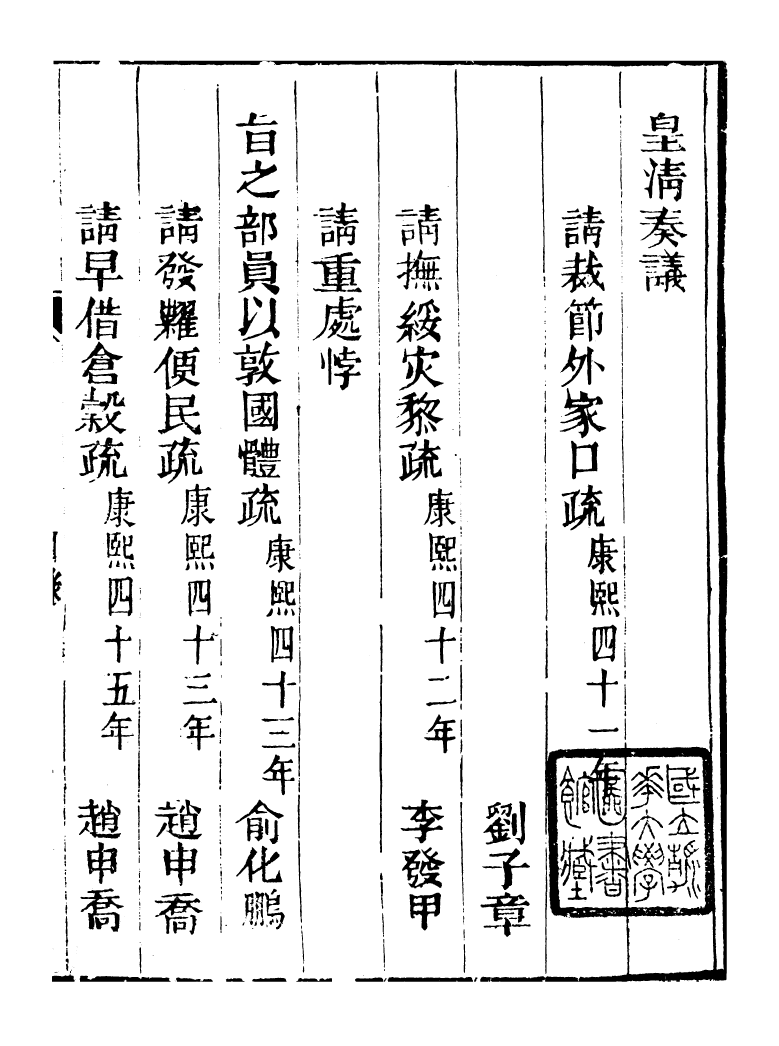 皇清奏議
請裁節外家口疏 康熙四十一年
劉子章
請撫綏灾黎疏 康熙四十二年 李發甲
請重處悖
旨之部員以敦國體疏 康熙四十三年 俞化鵬
請發糶便民疏 康熙四十三年 趙申喬
請早借倉糓疏 康熙四十五年 趙申喬
國立
華大學
圖書
館藏